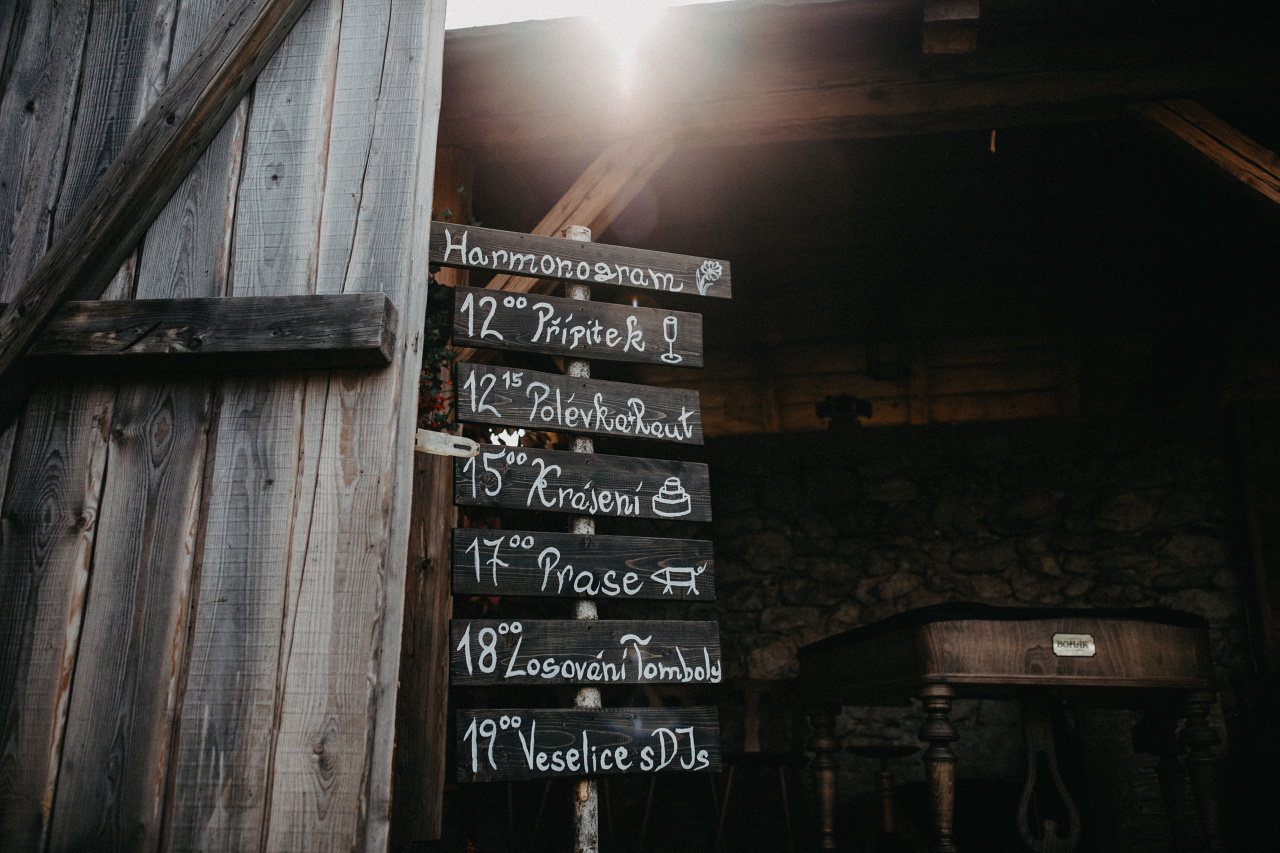 Harmonogram
12⁰⁰ Přípitek
12¹⁵ Polévka+Raut
15⁰⁰ Krájení
17⁰⁰ Prase
18⁰⁰ Losování Tomboly
19⁰⁰ Veselice s DJs
BOHÁK